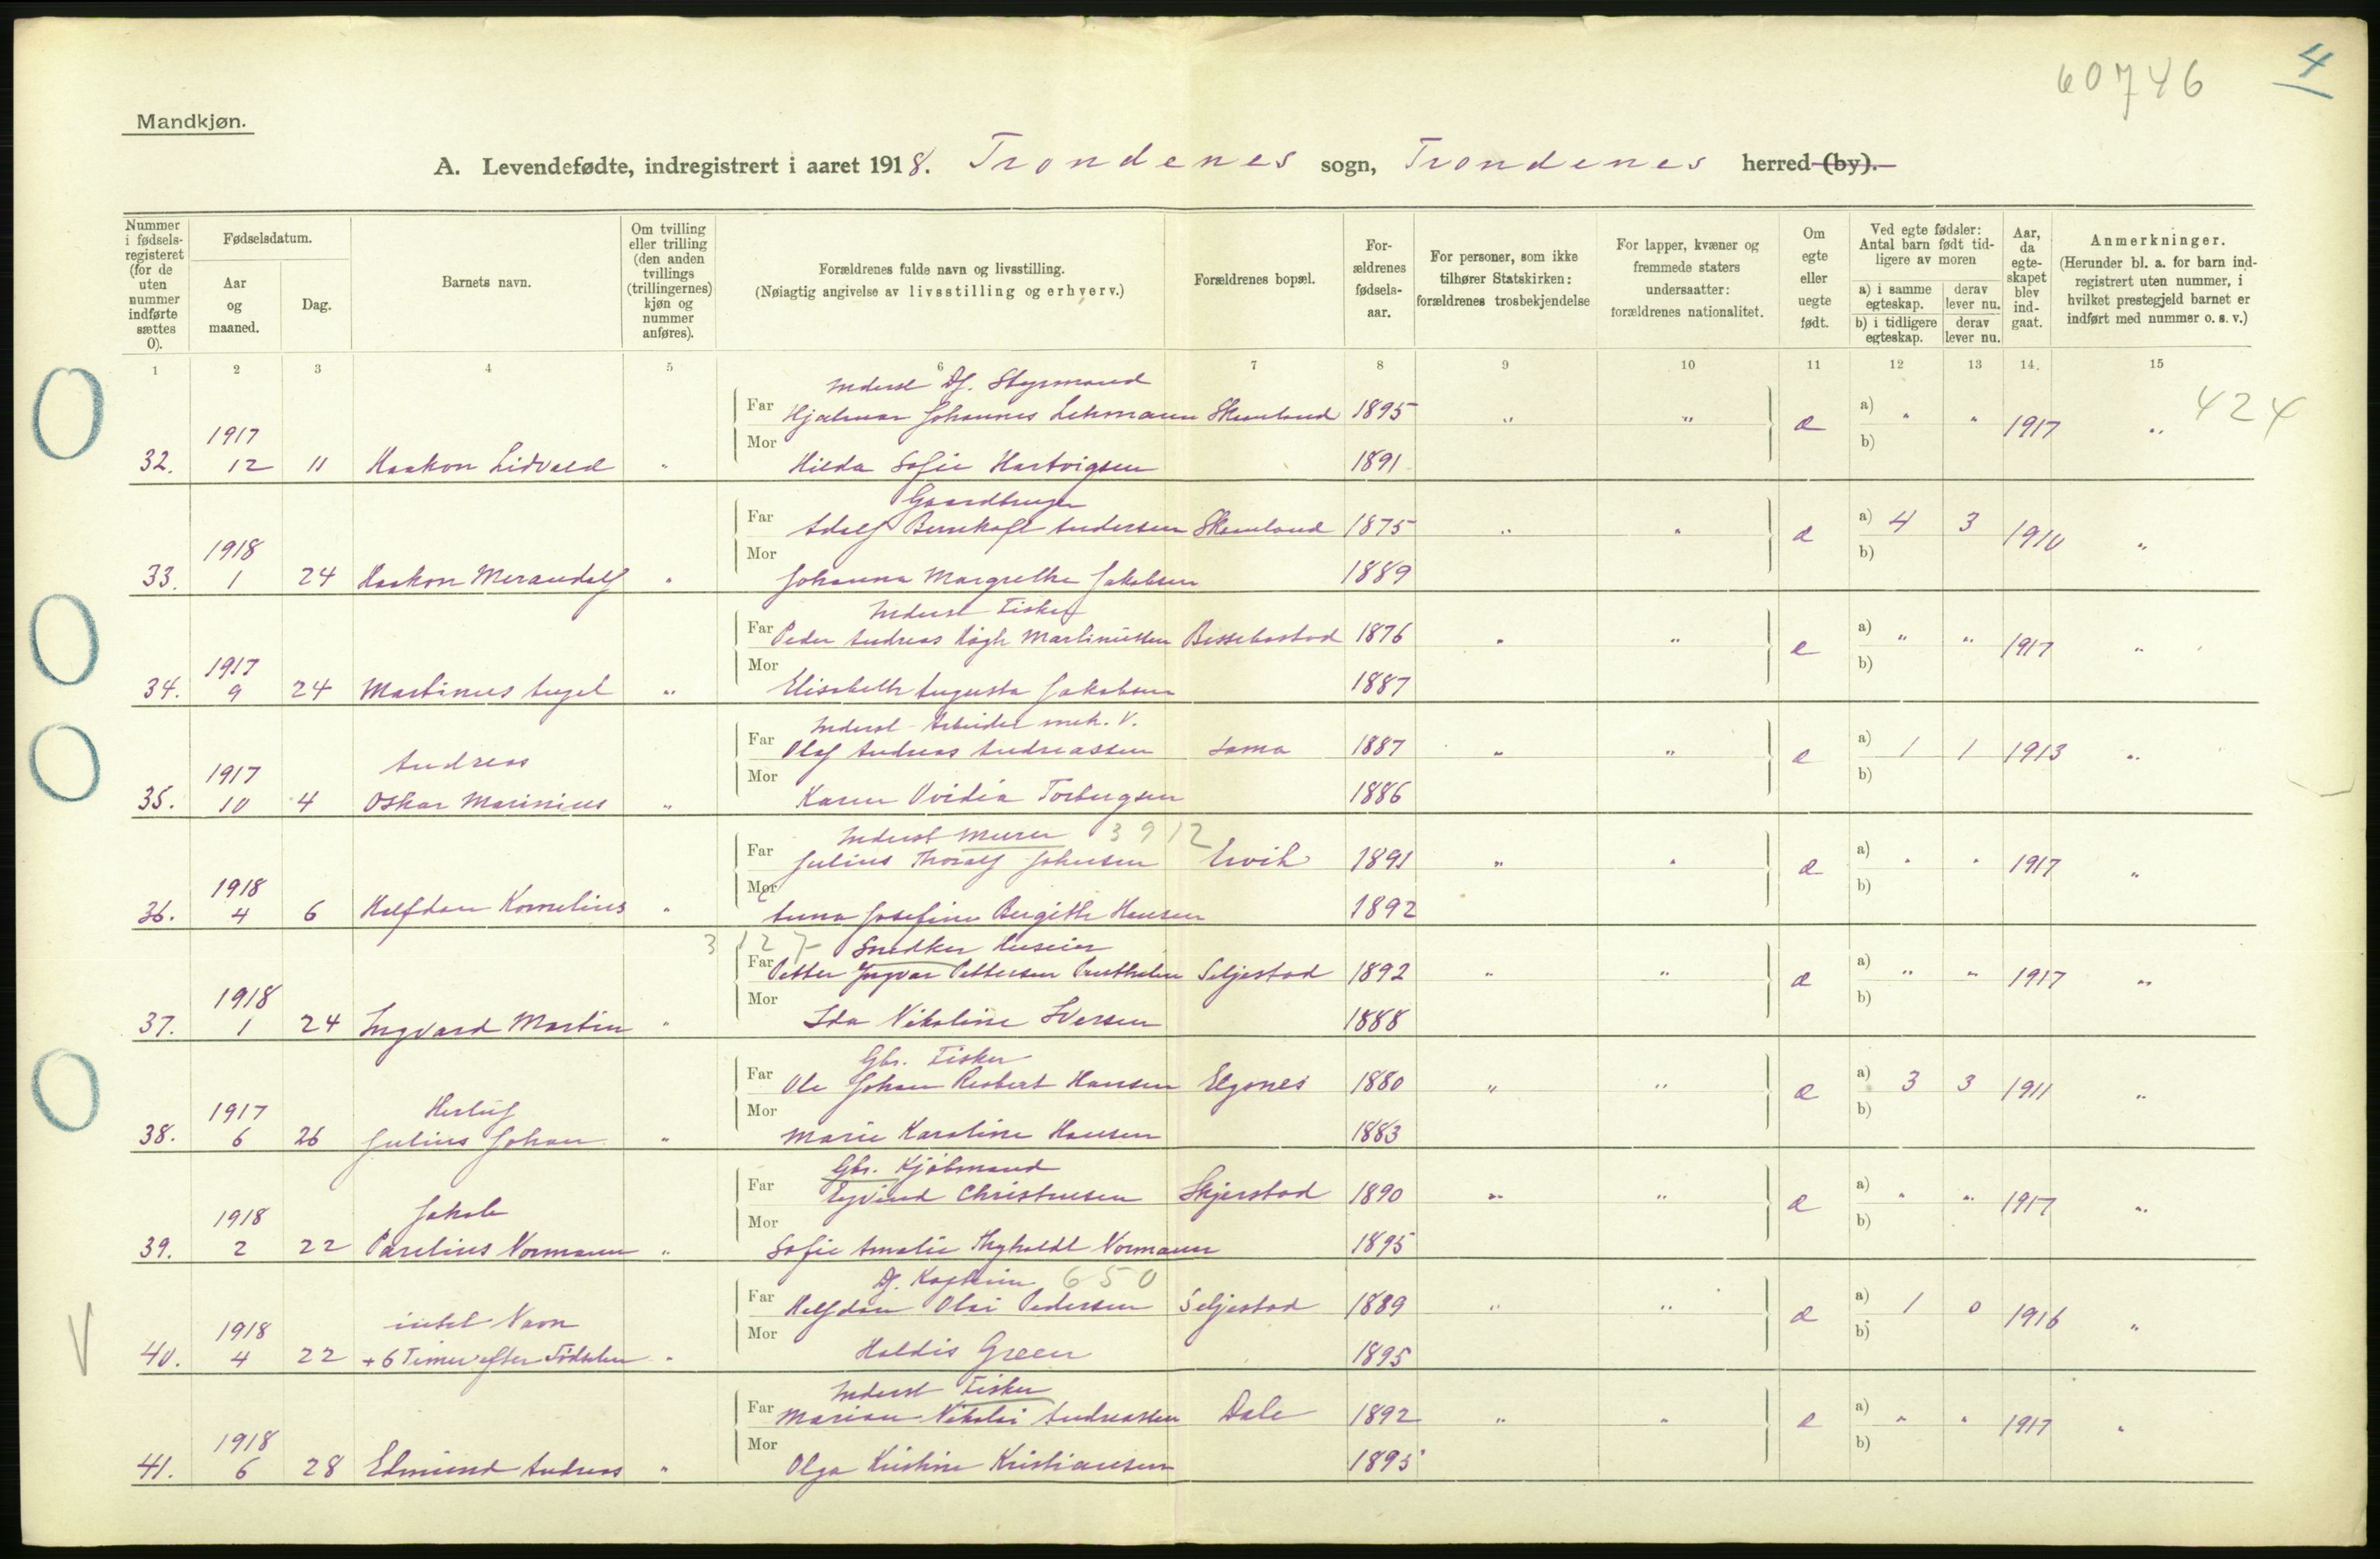 4
60746
Mandkjøn.
A. Levendefødte, indregistrert i aaret 1918. Trondenes sogn, Trondenes herred (by).
Nummer i fødsels-registeret (for de uten nummer indførte sættes 0).
Fødselsdatum.
Aar og maaned.
Dag.
Barnets navn.
Om tvilling eller trilling (den anden tvillings (trillingernes) kjøn og nummer anføres).
Forældrenes fulde navn og livsstilling.
(Nøiagtig angivelse av livsstilling og erhverv.)
Forældrenes bopæl.
For-ældrenes fødsels-aar.
For personer, som ikke tilhører Statskirken: forældrenes trosbekjendelse
For lapper, kvæner og fremmede staters undersaatter: forældrenes nationalitet.
Om egte eller uegte født.
Ved egte fødsler: Antal barn født tid-ligere av moren
a) i samme egteskap.
derav lever nu.
b) i tidligere egteskap.
derav lever nu.
Aar, da egte-skapet blev ind-gaat.
Anmerkninger.
(Herunder bl. a. for barn ind-registrert uten nummer, i hvilket prestegjeld barnet er indført med nummer o. s. v.)
1 2 3 4 5 6 7 8 9 10 11 12 13 14. 15
Inderst Df. Styrmand
Far Hjalmar Johannes Lehmann Skumland 1895 " " e a) " " 1917 " 424
1917 Mor b)
32. 12 11 Haakon Lidvald " Hilda Sofie Hartvigsen 1891
Gaardbruger
Far Adolf Andersen 1875 " " e a) 4 3 1910 "
1918 Mor b)
33. 1 24 Haakon " Johanna Margrethe Jakobsen 1889
Inderst Fisker
Far Peder Andreas Martinussen Bessebostad 1876 " " e a) " " 1917 "
1917 Mor b)
34. 9 24 Martinus " Elisabeth Augusta Jakobsen 1887
Inderst Arbeider mek. V.
Far Olaf Andreas Andreassen Sama 1887 " " e a) 1 1 1913 "
Andreas
1917 Mor b)
35. 10 4 Oskar Marinius " Karen Ovidia Torbergsen 1886
Inderst Murer 3912
Far Julius Thoralf Johnsen Ervik 1891 " " e a) " " 1917 "
1918 Mor b)
36. 4 6 Halfdan Kornelius " Anna Josefine Bergithe Hansen 1892
3127 Snedker Huseier
Far Petter Ingvar Pettersen Seljestad 1892 " " e a) " " 1917 "
1918 Mor b)
37. 1 24 Ingvard Martin " Ida Nikoline Iversen 1888
Gbr. Fisker
Far Ole Johan Hansen Elgsnes 1880 " " e a) 3 3 1911 "
Herluf
1917 Mor b)
38. 6 26 Julius Johan " Marie Karoline Hansen 1883
Gbr. Kjøbmand
Far Eyvind Christensen Skjerstad 1890 " " e a) " " 1917 "
Jakob
1918 Mor b)
39. 2 22 Parelius Normann " Sofie Amalie Normann 1895
Df. Kaptein 650
Far Halfdan Olai Pedersen Seljestad 1889 " " e a) 1 0 1916 "
intet Navn
1918 Mor b)
V 40. 4 22 +6 Timer efter Fødselen " Haldis Green 1895
Inderst Fisker
Far Marian Nikolai Andreassen Dale 1892 " " e a) " " 1917 "
1918 Mor b)
41. 6 28 Edmund Andreas " Olga Kristine Kristiansen 1895